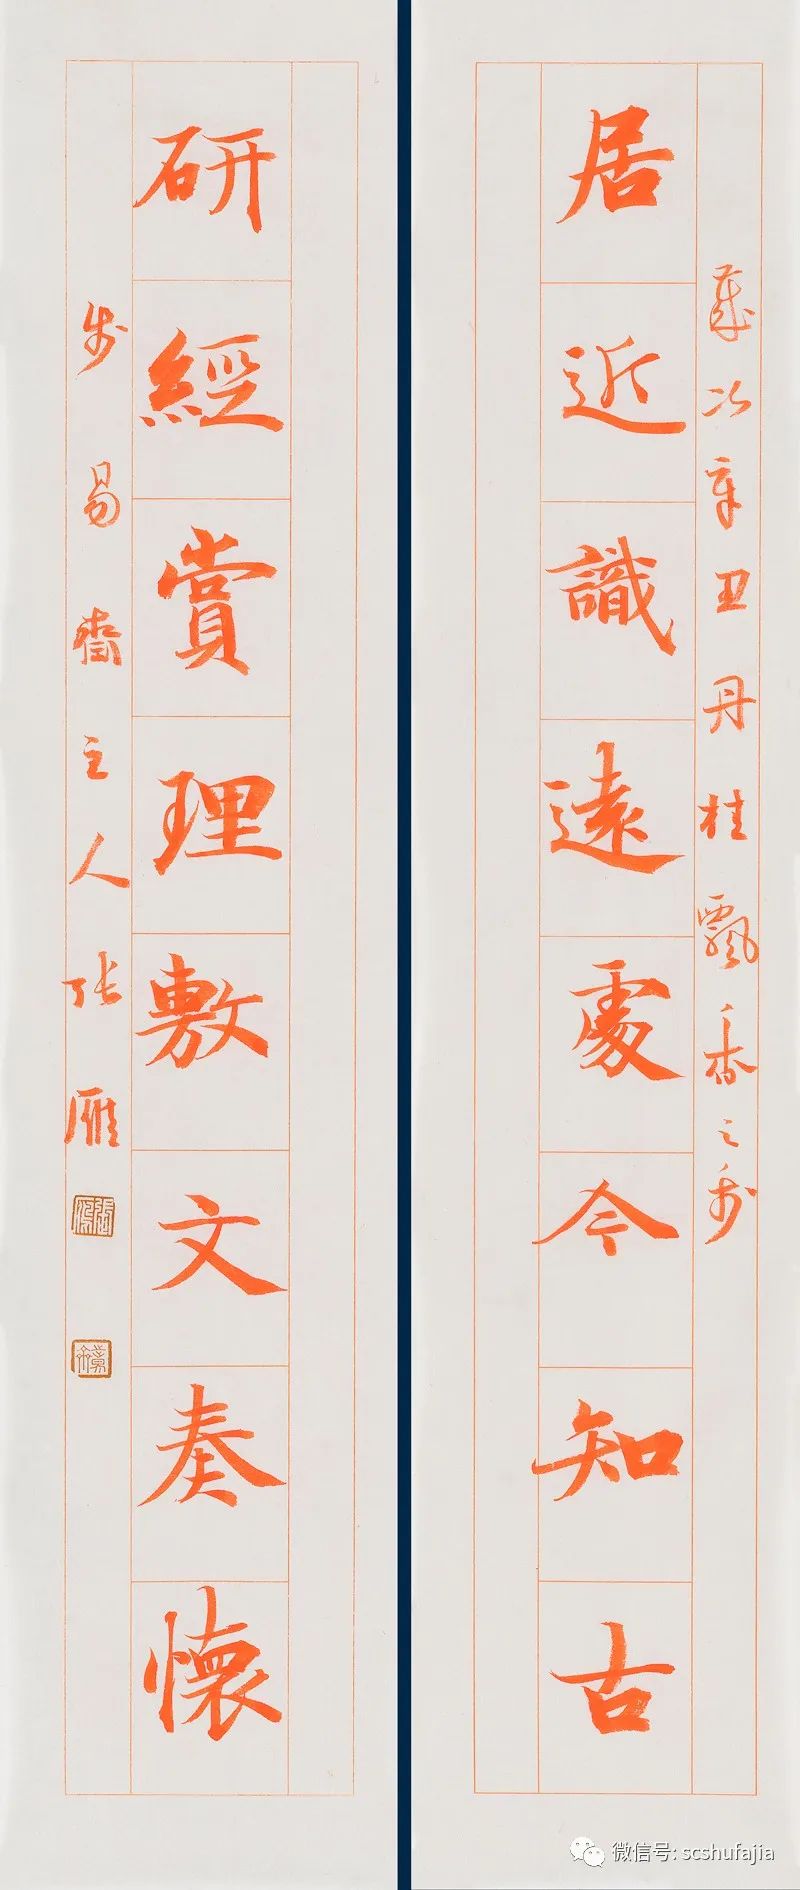 居近識遠處今知古
歲次辛丑丹桂飄香之秋
研經賞理敷文奏懷
易齋主人張雁
微信号: scshufajia